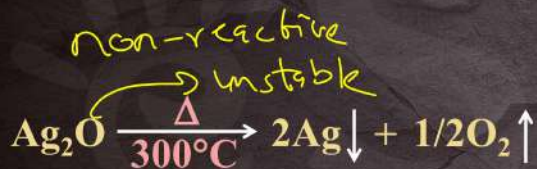 non-reactive
unstable
Ag₂O —Δ/300°C→ 2Ag↓ + 1/2O₂↑